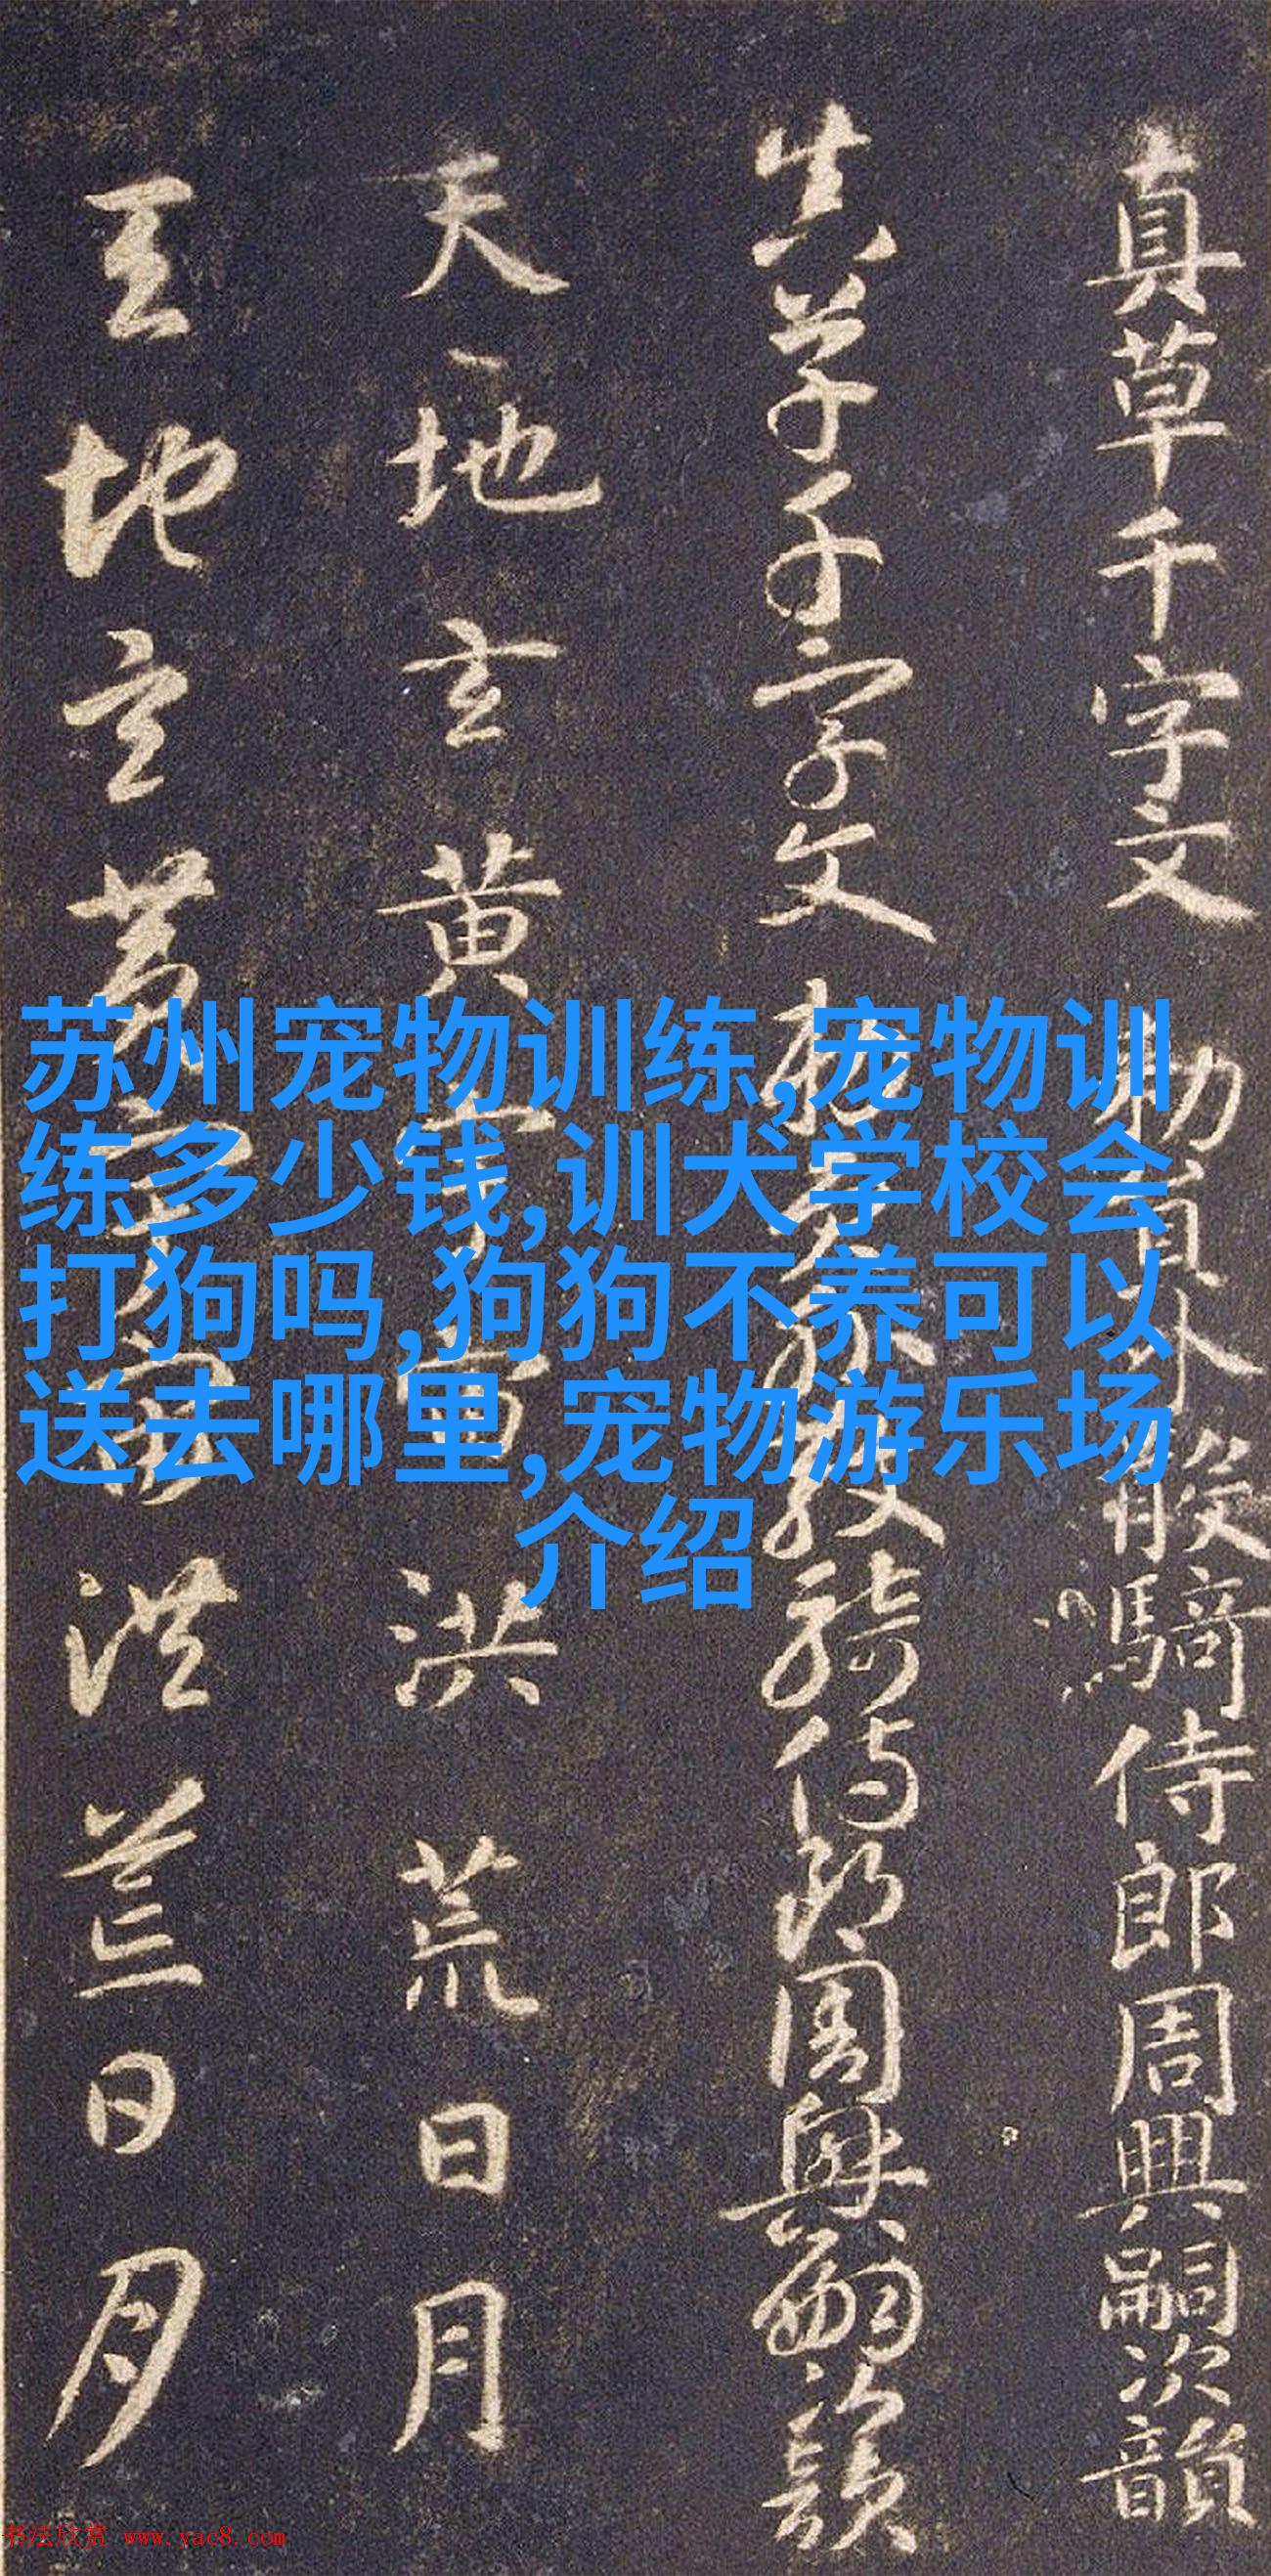 真草千字文
勅員外散騎侍郎周興嗣次韻
真草千字文
天地玄黄宇宙洪荒日月
天地玄黄宇宙洪荒日月
苏州宠物训练,宠物训
练多少钱,训犬学校会
打狗吗,狗狗不养可以
送去哪里,宠物游乐场
介绍
书法欣赏 www.yac8.com